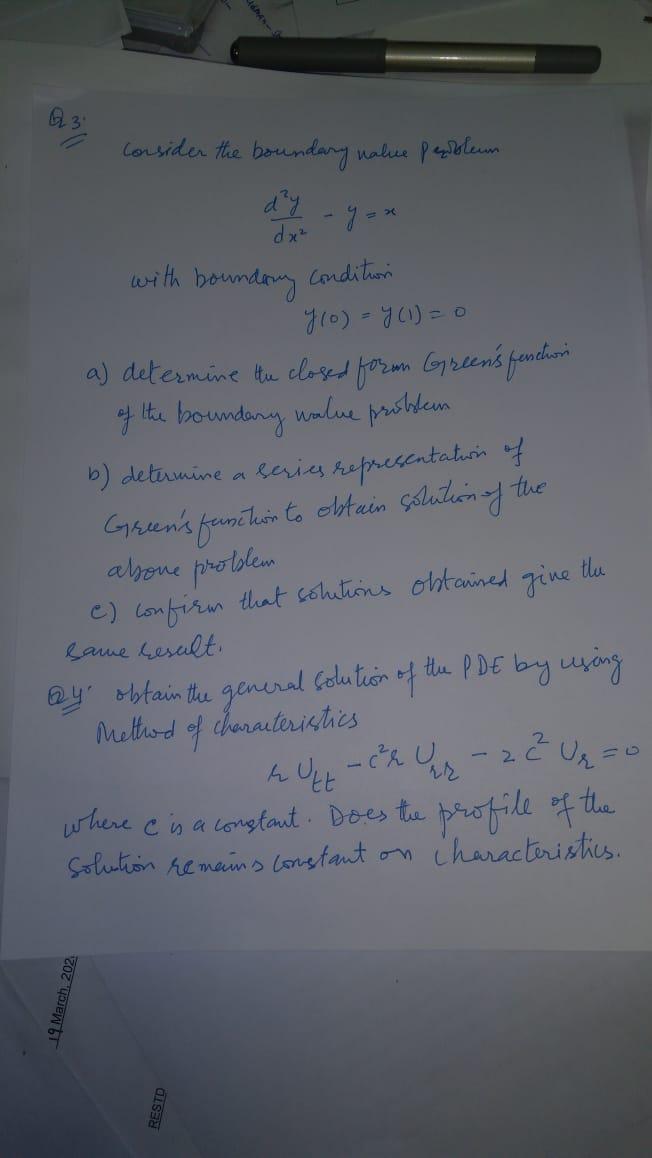 Q3:
Consider the boundary value problem
d²y/dx² - y = x
with boundary condition
y(0) = y(1) = 0
a) determine the closed form Green's function
of the boundary value problem
b) determine a series representation of
Green's function to obtain solution of the
above problem
c) confirm that solutions obtained give the
same result.
Q4: obtain the general solution of the PDE by using
Method of characteristics
r U_tt - c²r U_rr - 2 c² U_r = 0
where c is a constant. Does the profile of the
solution remains constant on characteristics.
19 March, 202
RESTD